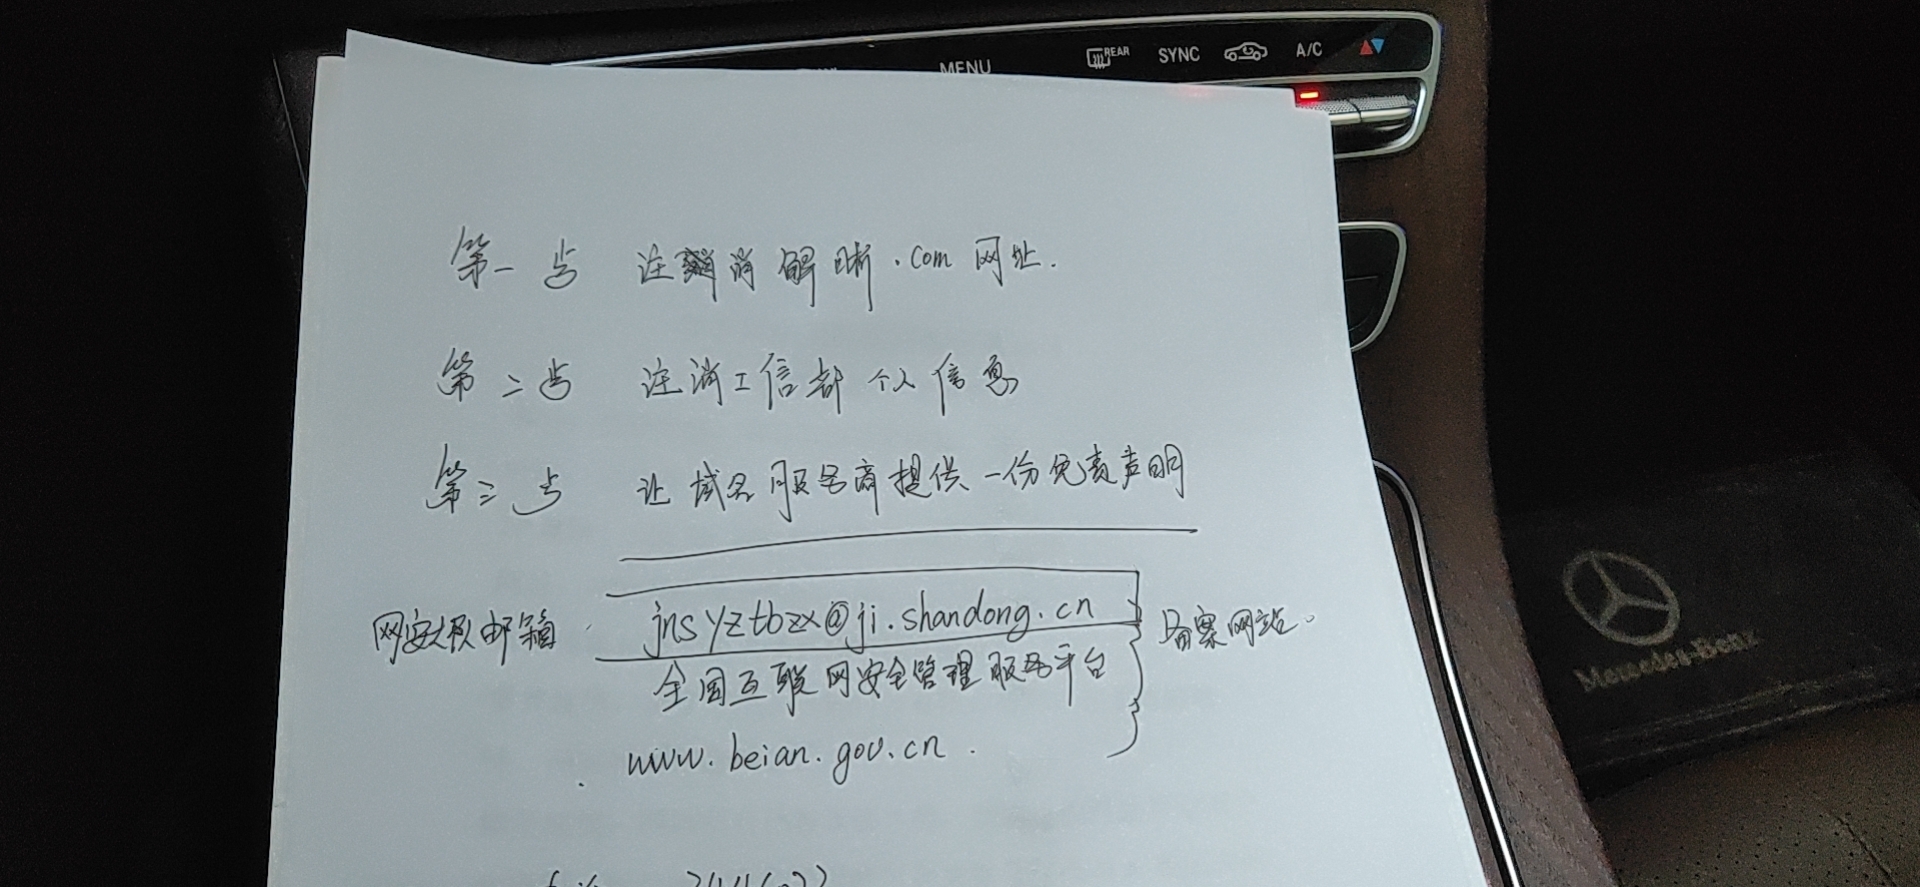 MENU REAR SYNC A/C
第一步 注销解晰.com网址.
第二步 注消工信部个人信息
第三步 让域名服务商提供一份免责声明
网安大队邮箱 jnsyztbzx@ji.shandong.cn 备案网站.
全国互联网安全管理服务平台
www.beian.gov.cn.
Mercedes-Benz